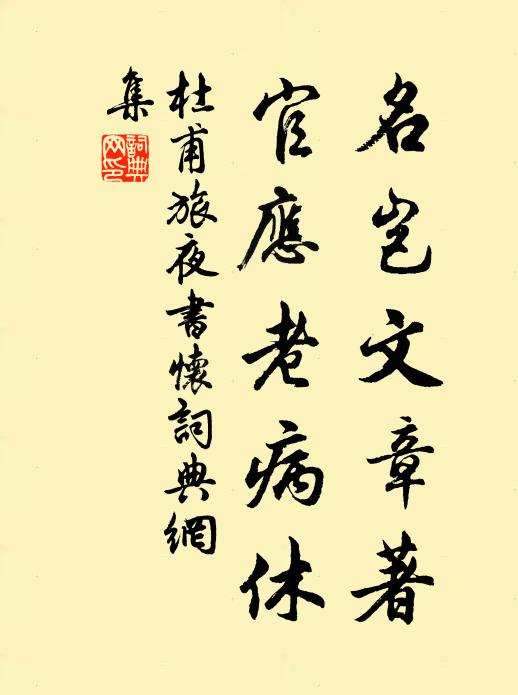 名豈文章著
官應老病休
杜甫旅夜書懷詞典網
集
詞典
网印